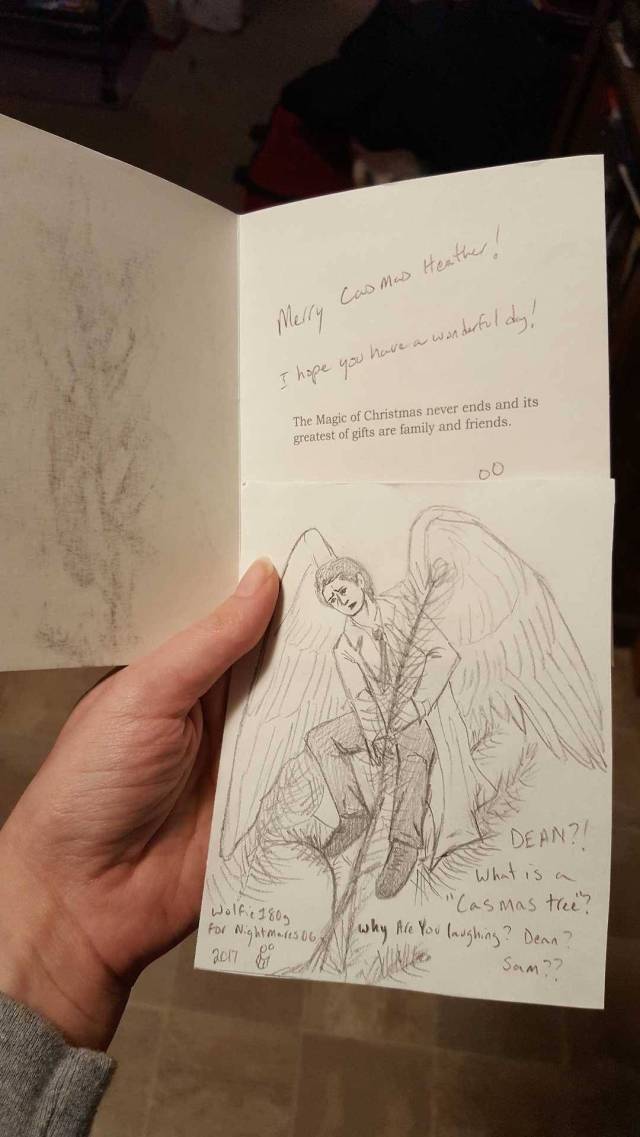 Merry Casmas Heather!
I hope you have a wonderful day!
The Magic of Christmas never ends and its
greatest of gifts are family and friends.
DEAN?!
What is a
"Casmas tree"?
Why Are You laughing? Dean?
Sam??
Wolfie180g
For Nightmares06
2017